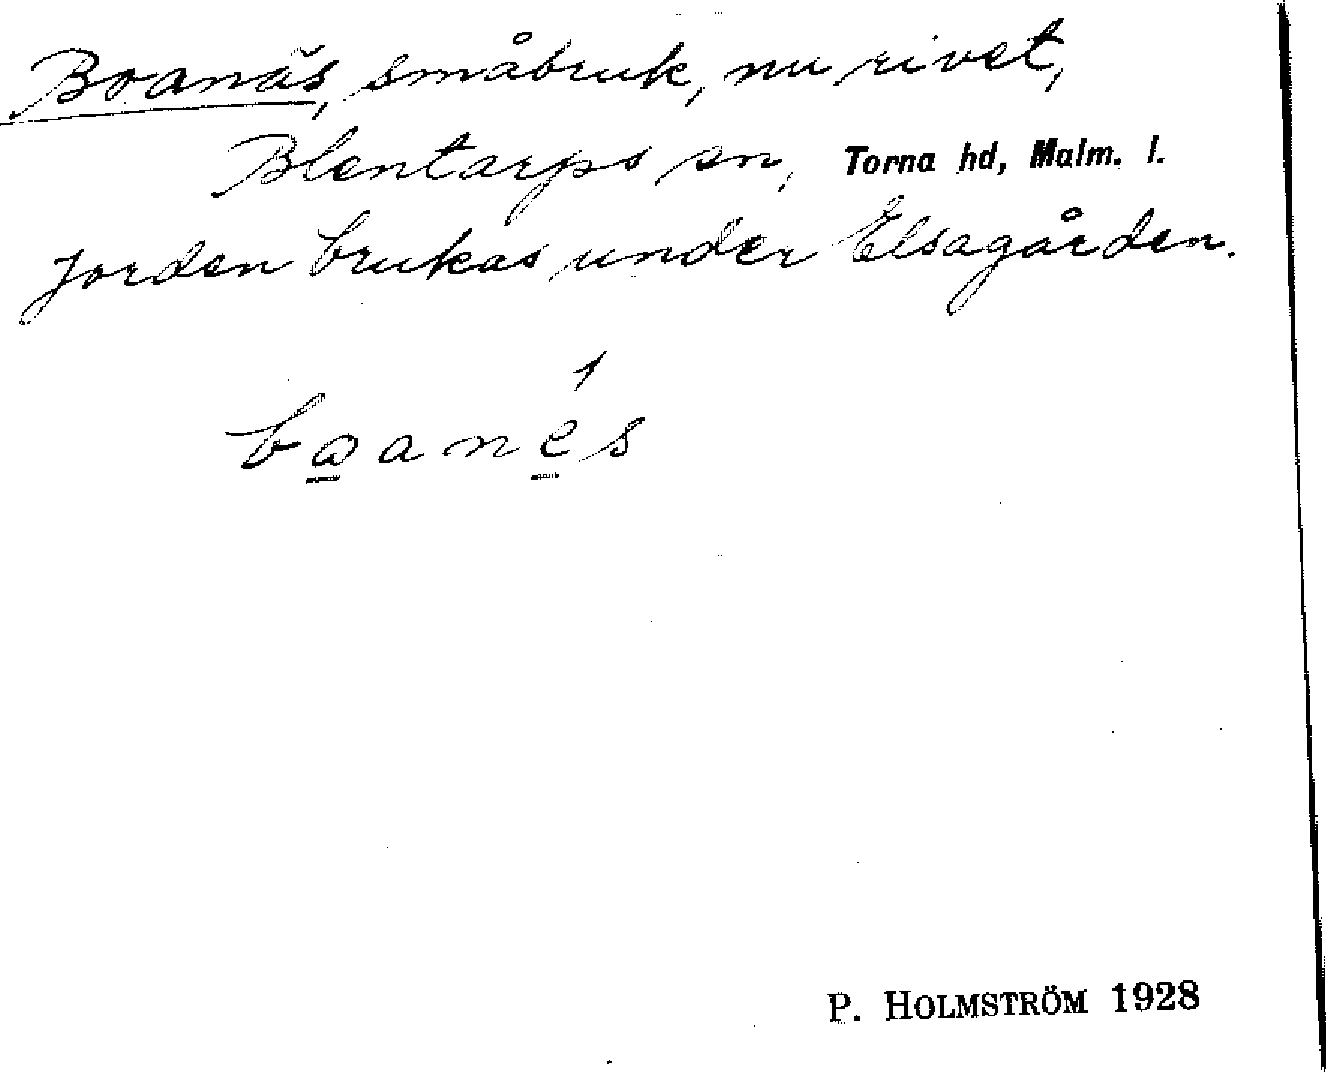 Boanäs, småbruk, nu rivet,
Blentarps sn, Torna hd, Malm. l.
Jorden brukas under Elsagården.
boanés
P. HOLMSTRÖM 1928